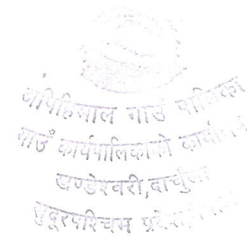 अपिहिमाल गाउँ पालिका
गाउँ कार्यपालिकाको कार्यालय
खण्डेश्वरी,दार्चुला
सुदूरपश्चिम प्रदेश